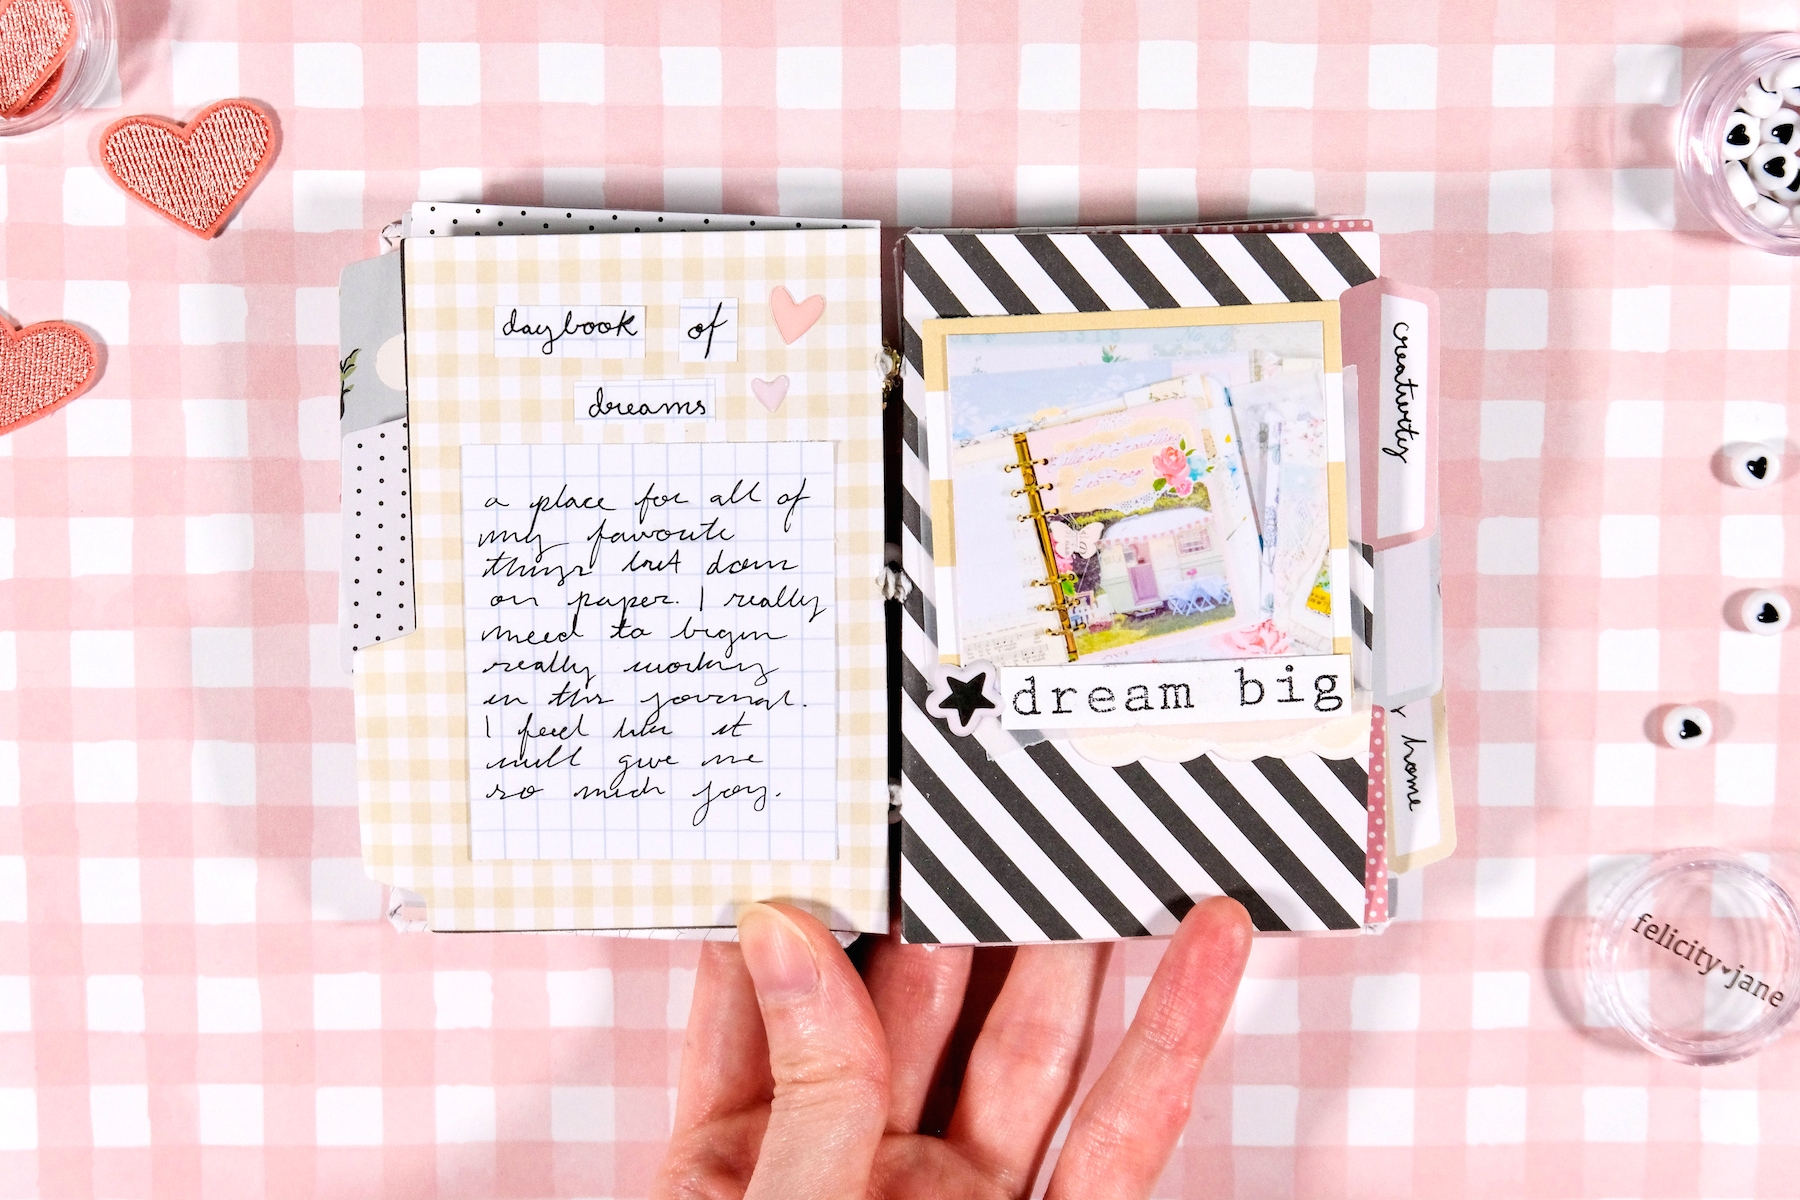 daybook of
dreams
a place for all of
my favorite
things last down
on paper. I really
need to begin
really working
in this journal.
I feel like it
will give me
so much joy.
dream big
creativity
home
felicity jane